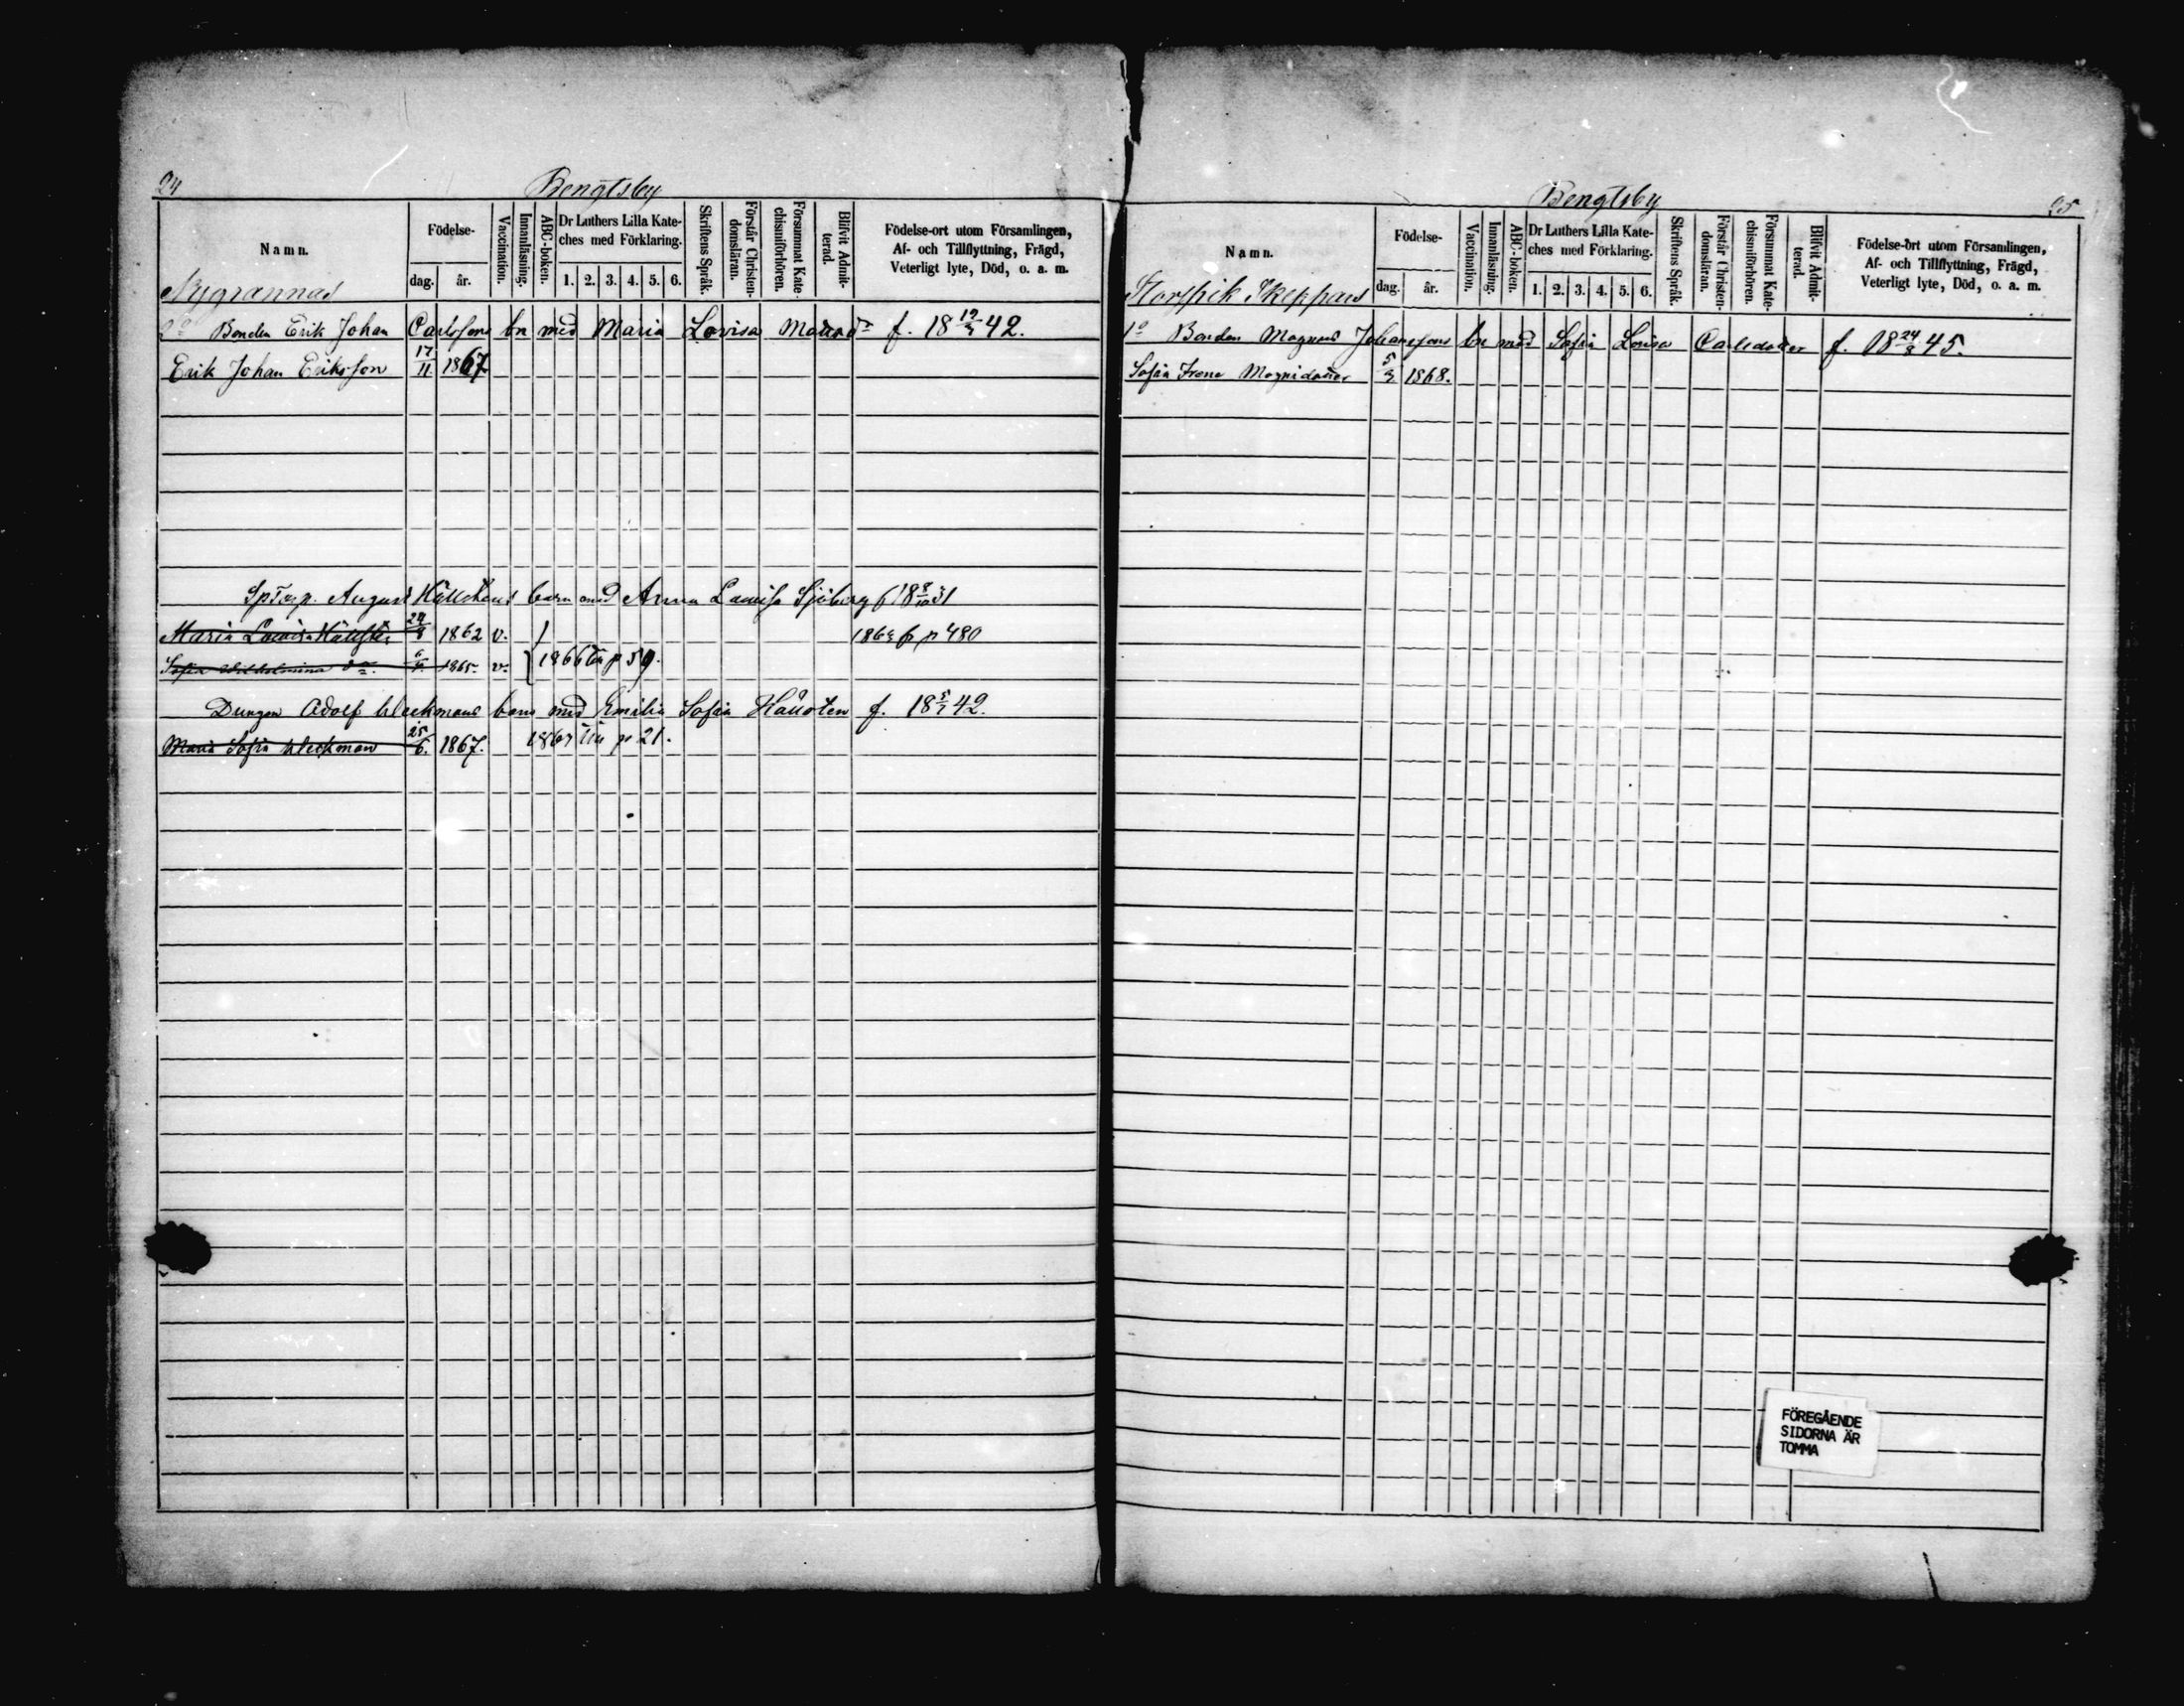 24
Bengtsby
Namn.
Födelse-
dag.
år.
Vaccination.
Innanläsning.
ABC-boken.
Dr Luthers Lilla Kate-
ches med Förklaring.
1. 2. 3. 4. 5. 6.
Skriftens Språk.
Förstår Christen-
domsläran.
Försummat Kate-
chismiförhören.
Blifvit Admit-
terad.
Födelse-ort utom Församlingen,
Af- och Tillflyttning, Frägd,
Veterligt lyte, Död, o. a. m.
Nygrannas
2o Bonden Erik Johan Carlssons bn med Maria Lovisa f. 18 19/3 42.
Erik Johan Eriksson 17/11 1867
August Källstens barn med Anna Lovisa Sjöberg f 18 8/10 31
Maria Lovisa Källsten 24/8 1862 v. p 480
Sofia Wilhelmina do. 1865 v. 1866 till p 59.
Drengen Adolf Kleckmans barn med Emilia Sofia f. 18 5/1 42.
Maria Sofia Kleckman 25/6. 1867. till p 21.
Bengtsby
25
Namn.
Födelse-
dag.
år.
Vaccination.
Innanläsning.
ABC-boken.
Dr Luthers Lilla Kate-
ches med Förklaring.
1. 2. 3. 4. 5. 6.
Skriftens Språk.
Förstår Christen-
domsläran.
Försummat Kate-
chismiförhören.
Blifvit Admit-
terad.
Födelse-ort utom Församlingen,
Af- och Tillflyttning, Frägd,
Veterligt lyte, Död, o. a. m.
Storspik Skeppars
1o Bonden Magnus Johanssons bn med Sofia Lovisa Carlsdotter f. 18 24/8 45.
Sofia Irene Magnidotter 5/3 1868.
FÖREGÅENDE
SIDORNA ÄR
TOMMA